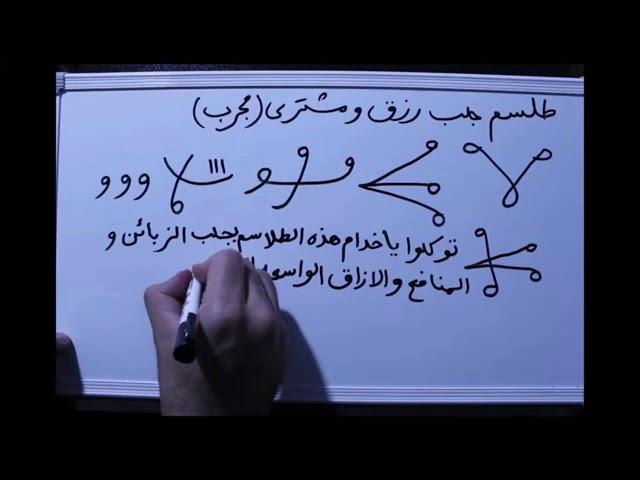 طلسم جلب رزق و مشتری (مجرب)
ااا و و و
توكلوا ياخدام هذه الطلاسم بجلب الزبائن و
المنافع والازاق الواسعة